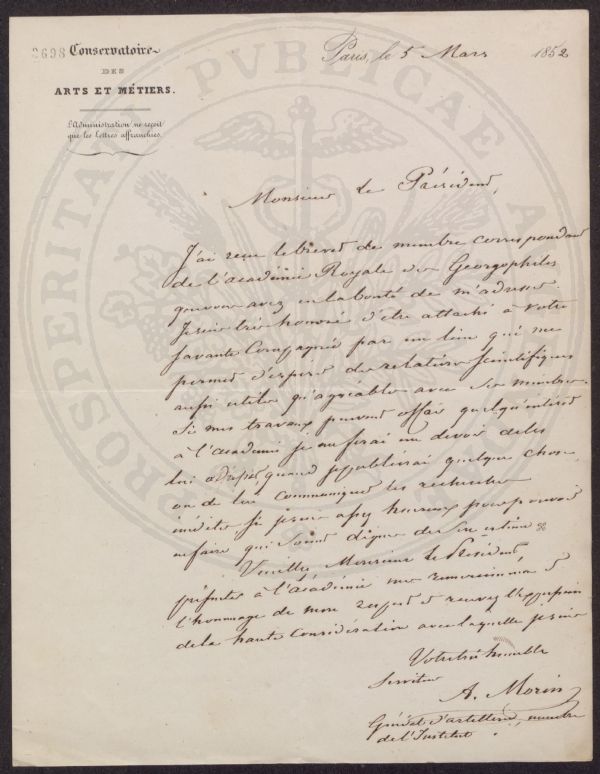 2698 Conservatoire
DES
ARTS ET MÉTIERS.
L'Administration ne reçoit
que les lettres affranchies.
Paris, le 5 Mars 1852
Monsieur le Président,
J'ai reçu le brevet de membre correspondant
de l'académie Royale des Georgophiles
que vous avez eu la bonté de m'adresser
Je suis très honoré d'être attaché à votre
savante Compagnie par un lien qui me
permet d'espérer des relations scientifiques
aussi utiles qu'agréables avec ses membres.
Si mes travaux peuvent offrir quelqu'intérêt
à l'académie je me ferai un devoir de les
lui adresser quand je publierai quelque chose,
ou de lui communiquer les recherches
inédites si je suis assez heureux pour pouvoir
en faire qui soient dignes de son estime
Veuillez Monsieur le Président,
présenter à l'académie mes remerciments et
l'hommage de mon respect et recevez l'expression
de la haute Considération avec laquelle je suis
Votre très humble
Serviteur
A. Morin
Général d'artillerie, membre
de l'Institut.
PROSPERITATI PVBLICAE